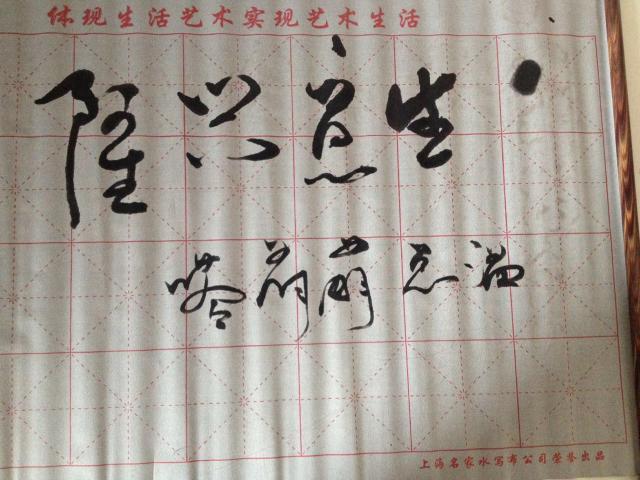 体现生活艺术实现艺术生活
生意兴隆
温萌
上海名家水写布公司荣誉出品